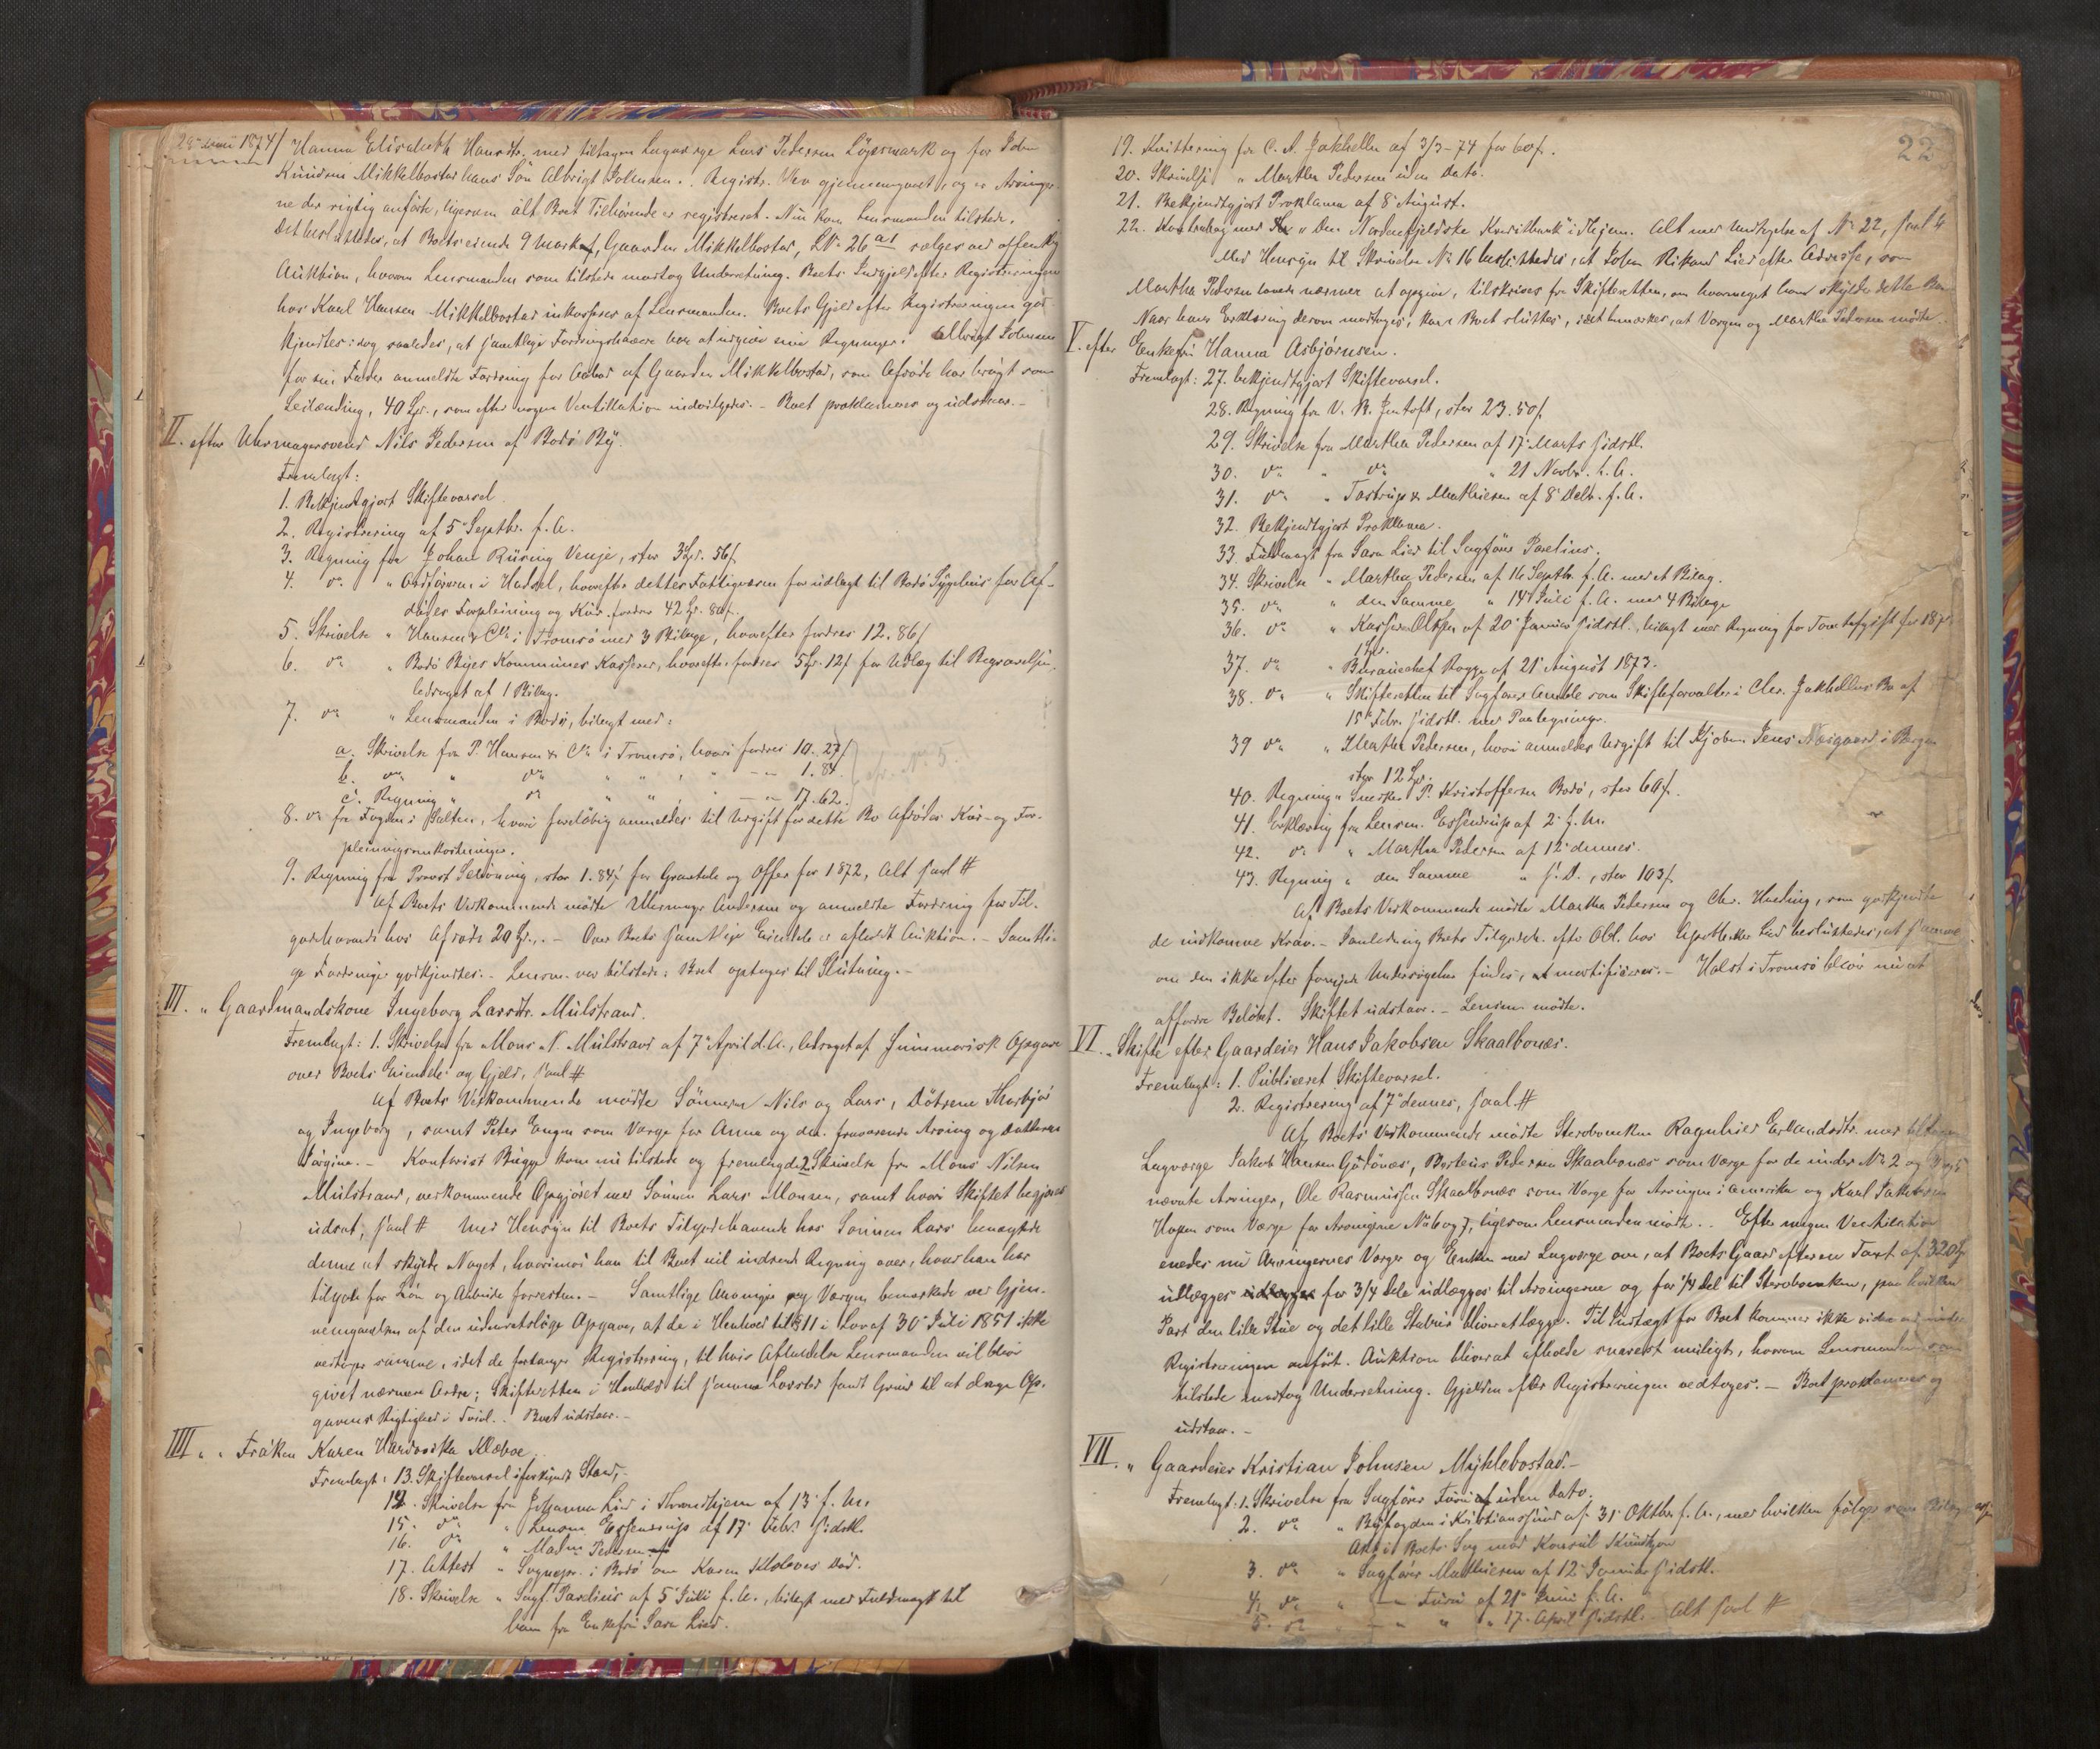 1874/ Hanna Elisabeth Hansdtr. med tiltagen Lagværge Lars Pedersen Lögermark og for John
Knudsen Mikkelbostad hans Sön Albrigt Johnsen. Registr. blev gjennemgaaet, og er Arvinger-
ne der rigtig anförte, ligesom alt Boet Tilhörende er registreret. Nu kom Lensmanden tilstede.
Det besluttedes, at Boets eiende 9 mark, Gaarden Mikkelbostad, LNr 26 a1 sælges ved offentlig
Auktion, hvorom Lensmanden som tilstede modtog Underretning. Boets Indgjeld efter Registreringen
hos Karl Hansen Mikkelbostad inkasseres af Lensmanden. Boets Gjeld efter Registreringen god-
kjendtes idag saaledes, at samtlige Fordringshavere har at indgive sine Regninger. Albrigt Johnsen
for sin Fader anmeldte Fordring for Aabod af Gaarden Mikkelbostad, som Afdöde har brugt som
Leilænding, 40 Spd., som efter nogen Ventillation indvilgedes. - Boet proklameres og udstaar. -
II. efter Uhrmagersvend Nils Pedersen af Bodö By.
Fremlagt:
1. Bekjendtgjort Skiftevarsel
2. Registrering af 5te Septbr. f. A.
3. Regning fra Johan Rüring Venje, stor 3 Spd. 56 s.
4. do " Ordföreren i Hadsel, hvorefter dettes Fattigvæsen for udlagt til Bodö Sygehus for Af-
dödes Forpleining og Kur fordrer 42 Spd. 80 s.
5. Skrivelse " Hansen & Co i Tromsö med 3 Bilage, hvorefter fordres 12. 86 s
6. do " Bodö Byes Kommunes Kasserer, hvorefter fordres 5 Spd. 12 s for Udlæg til Begravelsen,
ledsaget af 1 Bilag.
7. do " Lensmanden i Bodö, bilagt med:
a. Skrivelse fra P. Hansen & Co i Tromsö, hvori fordres 10. 27 s
b. do " do " " " " - - 1. 84
c. Regning " do " " " - - 17. 62
cfr. No 5.
8. do fra Fogden i Salten, hvori foreløbig anmeldes til Udgift for dette Bo Afdödes Kur- og For-
pleiningsomkostninger.
9. Regning fra Provst Schöning, stor 1. 84 s for Gravtale og Offer for 1872, Alt saal #
Af Boets Vedkommende mödte Uhrmager Andersen og anmeldte Fordring for Til-
godehavende hos Afdöde 20 Spd. - Over Boets samtlige Eiendele er afholdt Auktion. - Samtli-
ge Fordringer godkjendtes. - Lensm. var tilstede: Boet optages til Slutning. -
III. " Gaardmandskone Ingeborg Larsdtr. Mulstrand.
Fremlagt: 1. Skrivelse fra Mons N. Mulstrand af 7de April d. A., ledsaget af summarisk Opgave
over Boets Eiendele og Gjeld, saal #
Af Boets Vedkommende mödte Sönnerne Nils og Lars, Döttrene Thorbjör
og Ingeborg, samt Peter Engen som Værge for Anna og den fraværende Arving og Datteren
Jörgine. - Kontorist Bugge kom nu tilstede og fremlagde 2 Skrivelse fra Mons Nilsen
Mulstrand, vedkommende Opgjöret med Sönnen Lars Monsen, samt hvori Skiftet begjæres
udsat, saal # Med Hensyn til Boets Tilgodehavende hos Sönnen Lars benægtede
denne at skylde Noget, hvorimod han til Boet vil indsende Regning over, hvad han har
tilgode for Lön og Arbeide forresten. - Samtlige Arvinger og Værger bemærkede ved Gjen-
nemgaaelsen af den udenretslige Opgave, at de i Henhold til § 11 i Lov af 30te Juli 1851 ikke
vedtager samme, idet de forlanger Registrering, til hvis Afholdelse Lensmanden vil blive
givet nærmere Ordre; Skifteretten i Henhold til samme Lovsted fandt Grund til at drage Op-
gavens Rigtighed i Tvivl. Boet udstaar. -
IIII " " Fröken Karen Hardvicka Klæboe.
Fremlagt: 13. Skiftevarsel i forkyndt Stand,-
14. Skrivelse fra Johanna Lied i Throndhjem af 13de f. M.
15. do " Lensm. Essendrup af 17de Febr. sidstl.
16. do " Madm. Pedersen
17. Attest " Sognepr. i Bodö om Karen Klæboes Död.
18. Skrivelse " Sagf. Parelius af 5te Juli f. A., bilagt med Fuldmagt til
ham fra Enkefru Sara Lied.
22
19. Kvittering fra C. A. Jakhelln af 3/3-74 for 60 s.
20. Skrivelse " Martha Pedersen uden Dato.
21. Bekjendtgjort Proklama af 8de August.
22. Kontrabog med " Den Nordenfjeldske Kreditbank" i Thjem. Alt med Undtagelse af No 22, saal #
Med Hensyn til Skrivelse No 16 besluttedes, at Johan Rikard Lied efter Adresse, som
Martha Pedersen lovede nærmere at opgive, tilskrives fra Skifteretten, om hvormeget han skylder dette Bo
Naar hans Erklæring derom modtages, kan Boet sluttes, idet bemærkes, at Værgen og Martha Pedersen mödte.
V. efter Enkefru Hanna Asbjörnsen.
Fremlagt: 27. bekjendtgjort Skiftevarsel.
28. Regning fra V. B. Jentoft, stor 23. 50 s.
29. Skrivelse fra Martha Pedersen af 17de Marts sidstl.
30. do " do " 21 Novbr. f. A.
31. do " Tostrup & Mathiesen af 8de Decb. f. A.
32. Bekjendtgjort Proklama.
33. Fuldmagt fra Sara Lied til Sagförer Parelius.
34. Skrivelse " Martha Pedersen af 16 Septbr. f. A. med et Bilag.
35. do " den Samme " 14de Juli f. A. med 4 Bilage
36. do " Kasserer Olsen af 20de Januar sidstl., bilagt med Regning for Tomtefæstafgift for
1 Spd.
37. do " Bureauchef Rogge af 21de August 1873.
38. do " Skifteretten til Sagförer Amble som Skifteforvalter i Chr. Jakhellns Bo af
15de Febr. sidstl. med Paategninger.
39 do " Martha Pedersen, hvori anmeldes Udgift til Kjöbm. Jens Nesgaard i Bergen
stor 12 Spd.
40. Regning " Snedker P. Kristoffersen Bodö, stor 60 s.
41. Erklæring fra Lensm. Essendrup af 2de f. M.
42. do " Martha Pedersen af 12te dennes.
43. Regning " den Samme " s. D., stor 103 s.
Af Boets Vedkommende mödte Martha Pedersen og Chr. Hveding, som godkjendte
de indkomne Krav. - Ianledning Boets Tilgodeh. efter Obl. hos Apotheker Lied besluttedes, at samme
om den ikke efter fornyede Undersögelse findes, mortificeres. - Holst i Tromsö bliver nu at
affordre Belöbet. Skiftet udstaar. - Lensm. mödte.
VI. " Skifte efter Gaardeier Hans Jakobsen Skaalbones.
Fremlagt: 1. Publiceret Skiftevarsel.
2. Registrering af 7de dennes, saal. #
Af Boets Vedkommende mödte Sterboenken Ragnhild Erlandsdtr. med tiltagen
Lagværge Jakob Hansen Godönes, Borteus Pedersen Skaalbones som Værge for de under No 2 og
nævnte Arvinger, Ole Rasmussen Skaalbones som Værge for Arvingen i Amerika og Karl Jakobsen
Hopen som Værge for Arvingerne No 6 og 7, ligesom Lensmanden mödte. Efter nogen Ventilation
enedes nu Arvingernes Værger og Enken med Lagværge om, at Boets Gaard efter en Taxt af 320 Spd
udlægges for 3/4 Dele udlægges til Arvingerne og for 1/4 Del til Sterboenken, paa hvilken
Part den lille Stue og det lille Stabur bliver at lægge. Til Indtægt for Boet kommer ikke videre end under
Registreringen anfört. Auktion bliver at afholde snarest muligt, hvorom Lensmanden som
tilstede modtog Underretning. Gjælden efter Registreringen vedtoges. - Boet proklameres og
udstaar. -
VII. " Gaardeier Kristian Johnsen Myklebostad. -
Fremlagt: 1. Skrivelse fra Sagförer Furu uden Dato.
2. do " Byfogden i Kristianssund af 31te Oktbr. f. A., med hvilken fölger som Bilag
Akt i Boets Sag mod Konsul Knudtzon
3. do " Sagförer Mathiesen af 12te Januar sidstl.
4. do " - Furu af 21de Juni f. A.
5. do " - " " 17. April sidstl. - Alt saal #